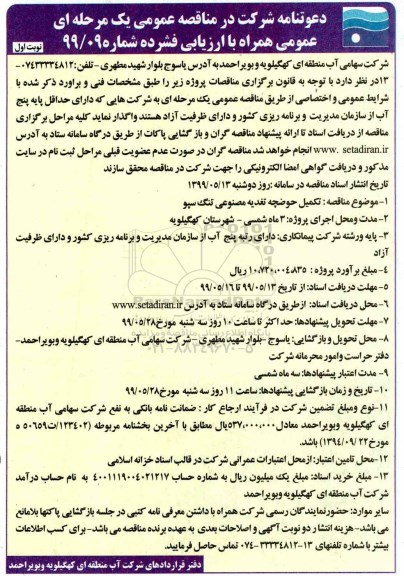 دعوتنامه شرکت در مناقصه عمومی یک مرحله ای
عمومی همراه با ارزیابی فشرده شماره ۹۹/۰۹
نوبت اول
شرکت سهامی آب منطقه ای کهگیلویه و بویراحمد به آدرس یاسوج بلوار شهید مطهری - تلفن: ۰۷۴۳۳۳۳۴۸۱۲-
۱۳ در نظر دارد با توجه به قانون برگزاری مناقصات پروژه زیر را طبق مشخصات فنی و براورد ذکر شده با
شرایط عمومی و اختصاصی از طریق مناقصه عمومی یک مرحله ای به شرکت هایی که دارای حداقل پایه پنج
آب از سازمان مدیریت و برنامه ریزی کشور و دارای ظرفیت آزاد هستند واگذار نماید کلیه مراحل برگزاری
مناقصه از دریافت اسناد تا ارائه پیشنهاد مناقصه گران و باز گشایی پاکات از طریق درگاه سامانه ستاد به آدرس
www. setadiran.ir انجام خواهد شد مناقصه گران در صورت عدم عضویت قبلی مراحل ثبت نام در سایت
مذکور و دریافت گواهی امضا الکترونیکی را جهت شرکت در مناقصه محقق سازند
تاریخ انتشار اسناد مناقصه در سامانه :روز دوشنبه ۱۳۹۹/۰۵/۱۳
۱-موضوع مناقصه : تکمیل حوضچه تغذیه مصنوعی تنگ سپو
۲-مدت ومحل اجرای پروژه : ۳ ماه شمسی - شهرستان کهگیلویه
۳- پایه ورشته شرکت پیمانکاری: دارای رتبه پنج آب از سازمان مدیریت و برنامه ریزی کشور و دارای ظرفیت
آزاد
۴-مبلغ برآورد پروژه : ۱۰،۷۲۰،۰۰۴،۸۳۵ ریال
۵- مهلت دریافت اسناد: از تاریخ ۹۹/۰۵/۱۳ تا ۹۹/۰۵/۱۶
۶- محل دریافت اسناد: ازطریق درگاه سامانه ستاد به آدرس www.setadiran.ir
۷- مهلت تحویل پیشنهادها: حداکثر تا ساعت ۱۰ روز سه شنبه مورخ ۹۹/۰۵/۲۸
۸- محل تحویل و بازگشایی: یاسوج -بلوار شهید مطهری - شرکت سهامی آب منطقه ای کهگیلویه وبویراحمد-
دفتر حراست وامور محرمانه شرکت
۹- مدت اعتبار پیشنهادها: سه ماه شمسی
۱۰- تاریخ و زمان بازگشایی پیشنهادها: ساعت ۱۱ روز سه شنبه مورخ ۹۹/۰۵/۲۸
۱۱-نوع ومبلغ تضمین شرکت در فرآیند ارجاع کار : ضمانت نامه بانکی به نفع شرکت سهامی آب منطقه
ای کهگیلویه وبویر احمد معادل ۵۳۷،۰۰۰،۰۰۰ریال مطابق با آخرین بخشنامه مربوطه (۱۲۳۴۰۲/ت۵۰۶۵۹ ه
مورخ ۱۳۹۴/۰۹/۲۲) باشد.
۱۲-محل تامین اعتبار: ازمحل اعتبارات عمرانی شرکت در قالب اسناد خزانه اسلامی
۱۳- مبلغ خرید اسناد: مبلغ یک میلیون ریال به شماره حساب ۴۰۰۱۱۱۹۰۰۴۰۲۱۲۱۷ به نام حساب درآمد
شرکت آب منطقه ای کهگیلویه وبویراحمد
سایر موارد: حضورنمایندگان رسمی شرکت همراه با داشتن معرفی نامه کتبی در جلسه بازگشایی پاکتها بلامانع
می باشد- هزینه انتشار دو نوبت آگهی و اصلاحات بعدی به عهده برنده مناقصه می باشد- برای کسب اطلاعات
بیشتر با شماره تلفنهای ۱۳-۰۷۴-۳۳۳۳۴۸۱۲ تماس حاصل فرمایید.
دفتر قراردادهای شرکت آب منطقه ای کهگیلویه وبویراحمد